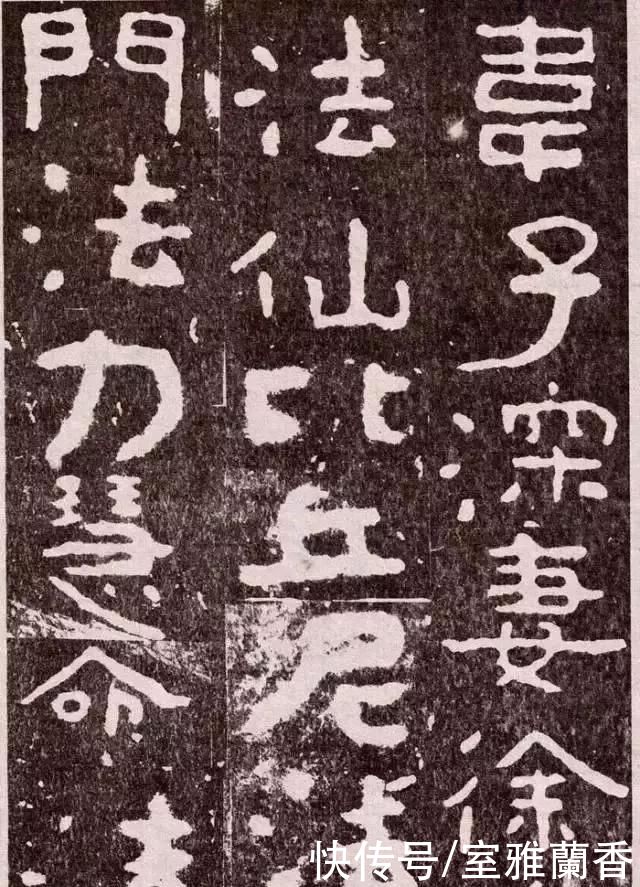 韋子深妻徐
法仙比丘尼法
門法力慧命法
快传号/室雅蘭香